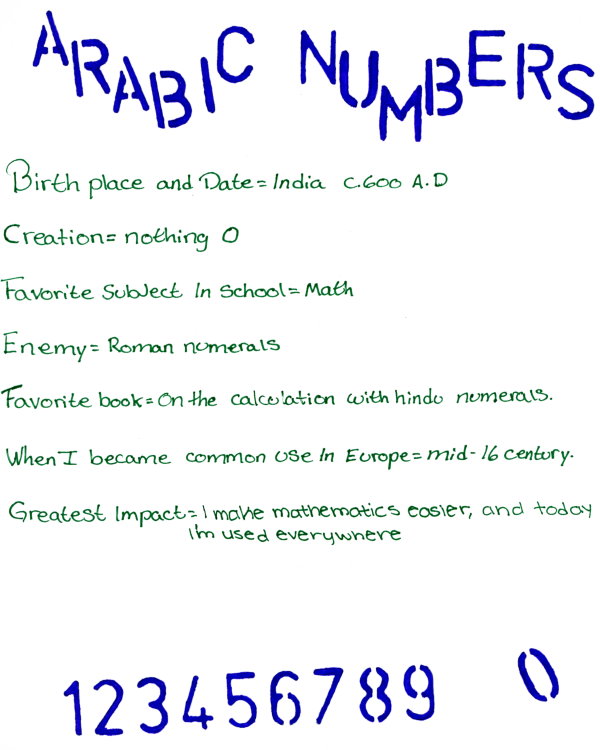 ARABIC NUMBERS
Birth place and Date = India c.600 A.D
Creation = nothing 0
Favorite Subject In School = Math
Enemy = Roman numerals
Favorite book = On the calculation with hindu numerals.
When I became common use In Europe = mid-16 century.
Greatest Impact = I make mathematics easier, and today
I'm used everywhere
123456789 0